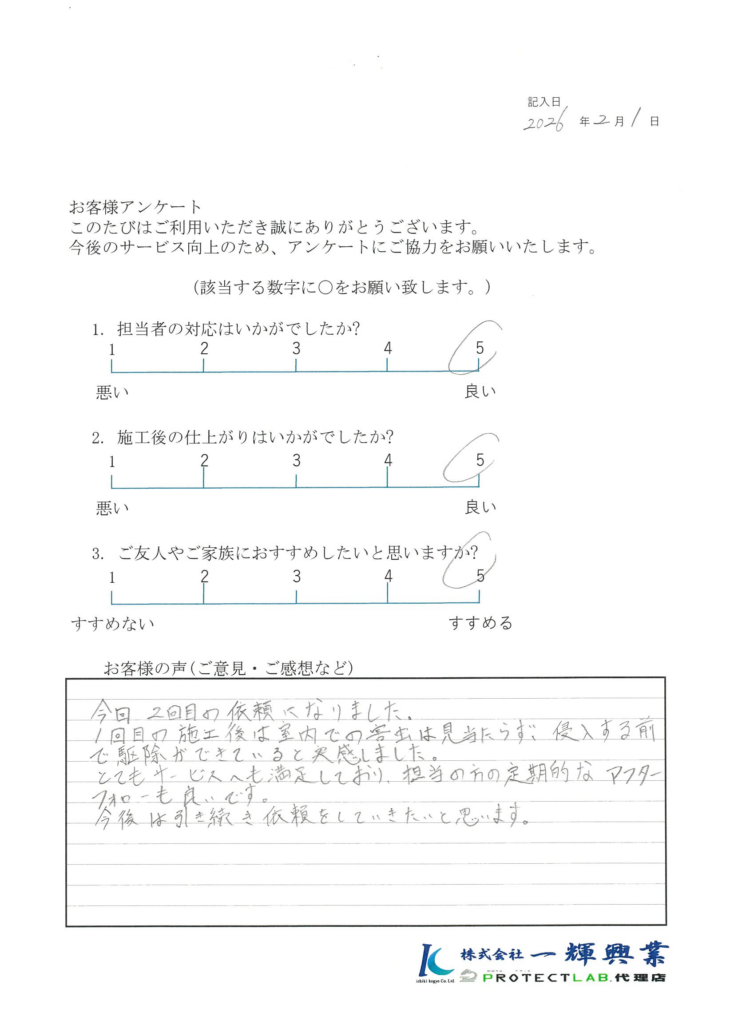 記入日
2026 年 2 月 1 日
お客様アンケート
このたびはご利用いただき誠にありがとうございます。
今後のサービス向上のため、アンケートにご協力をお願いいたします。
(該当する数字に○をお願い致します。)
1. 担当者の対応はいかがでしたか?
1 2 3 4 5
悪い 良い
2. 施工後の仕上がりはいかがでしたか?
1 2 3 4 5
悪い 良い
3. ご友人やご家族におすすめしたいと思いますか?
1 2 3 4 5
すすめない すすめる
お客様の声(ご意見・ご感想など)
今回 2回目の依頼になりました。
1回目の施工後は室内での害虫は見当たらず、侵入する前
で駆除ができていると実感しました。
とてもサービスへも満足しており、担当の方の定期的なアフター
フォローも良いです。
今後は引き続き依頼をしていきたいと思います。
株式会社 一輝興業
Ichiki kogyo Co. Ltd
PROTECTLAB.代理店